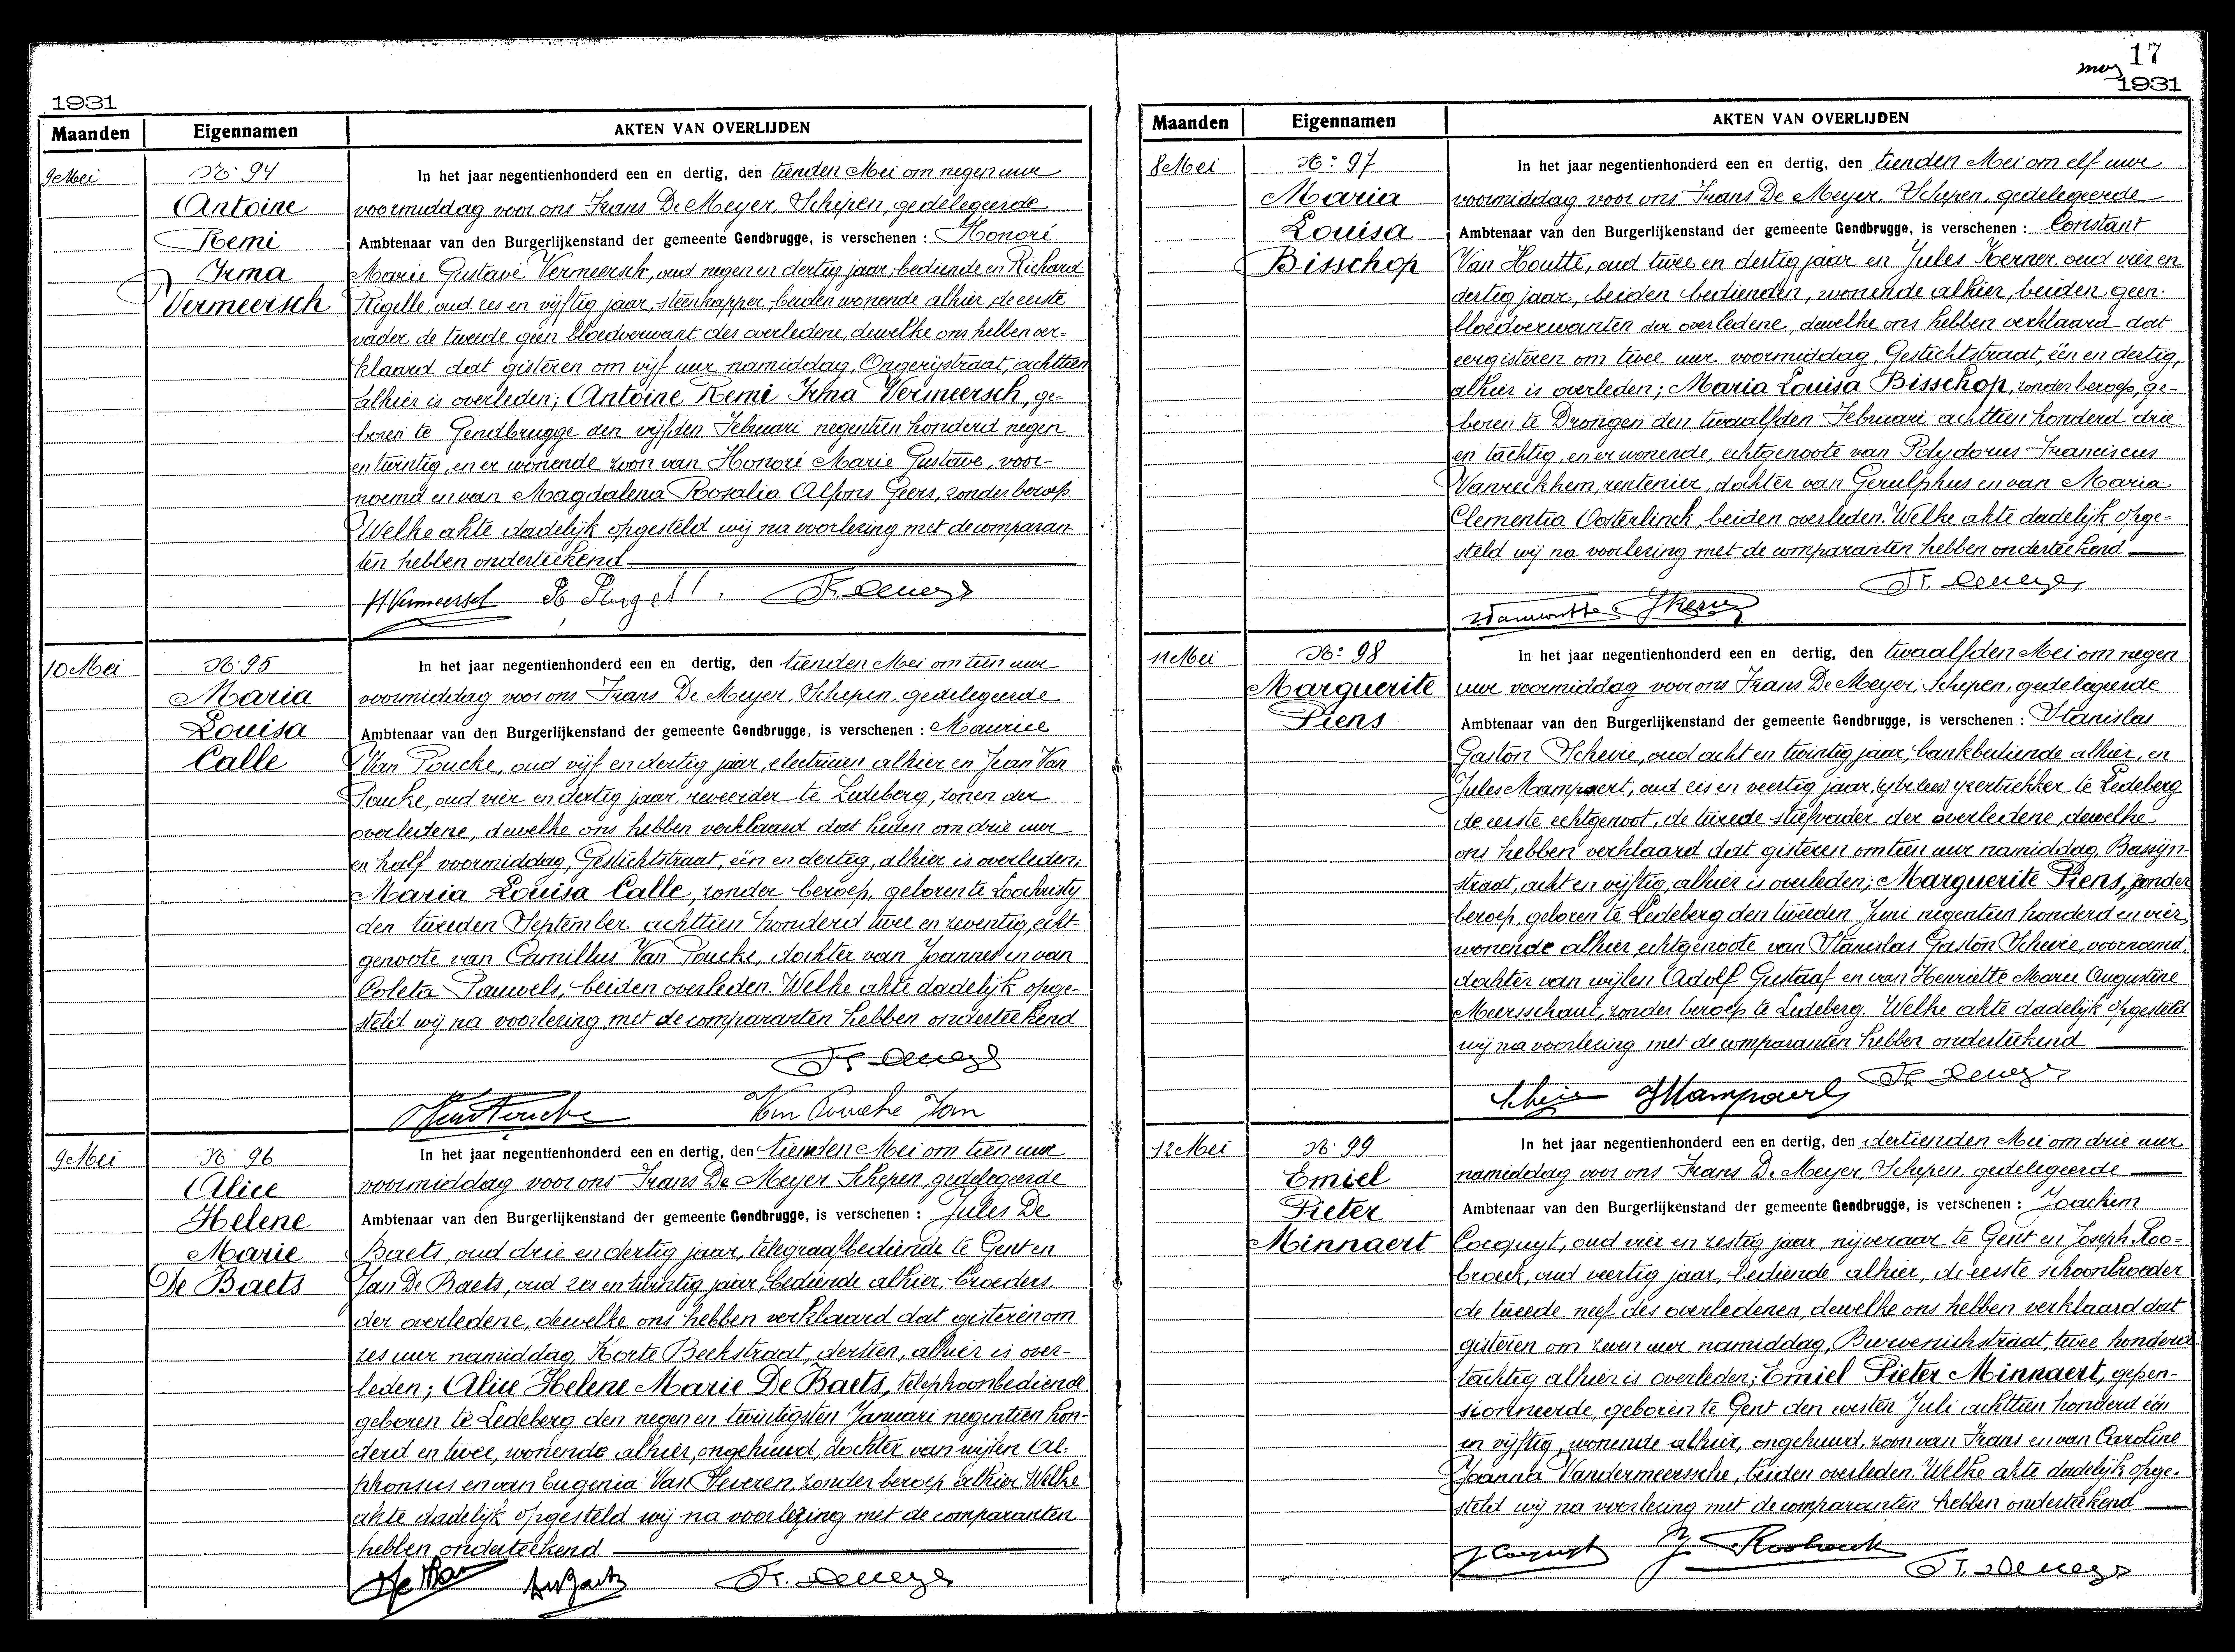 1931
Maanden Eigennamen AKTEN VAN OVERLIJDEN
9 Mei
N° 94
Antoine
Remi
Irma
Vermeersch
In het jaar negentienhonderd een en dertig, den tienden Mei om negen uur
voormiddag voor ons Frans De Meyer, Schepen, gedelegeerde
Ambtenaar van den Burgerlijkenstand der gemeente Gendbrugge, is verschenen : Honoré
Marie Gustave Vermeersch, oud negen en dertig jaar, bediende en Richard
Rigelle, oud zes en vijftig jaar, steenkapper, beiden wonende alhier, de eerste
vader de tweede geen bloedverwant des overledene, dewelke ons hebben ver-
klaard dat gisteren om vijf uur namiddag, Ongerijstraat, achttien
alhier is overleden; Antoine Remi Irma Vermeersch, ge-
boren te Gendbrugge den vijfden Februari negentien honderd negen
en twintig, en er wonende zoon van Honoré Marie Gustave, voor-
noemd en van Magdalena Rosalia Alfons Geers, zonder beroep
Welke akte dadelijk opgesteld wij na voorlezing met de comparan-
ten hebben onderteekend
HVermeersch Fr. Demeyer
10 Mei
N° 95
Maria
Louisa
Calle
In het jaar negentienhonderd een en dertig, den tienden Mei om tien uur
voormiddag voor ons Frans De Meyer, Schepen, gedelegeerde
Ambtenaar van den Burgerlijkenstand der gemeente Gendbrugge, is verschenen : Maurice
Van Poucke, oud vijf en dertig jaar, electricien alhier en Jean Van
Poucke, oud vier en dertig jaar, reveerder te Ledeberg, zonen der
overledene, dewelke ons hebben verklaard dat heden om drie uur
en half voormiddag, Gestichtstraat, één en dertig, alhier is overleden;
Maria Louisa Calle, zonder beroep, geboren te Loochristy
den tweeden September achttien honderd twee en zeventig, echt-
genoote van Camillus Van Poucke, dochter van Joannes en van
Coleta Pauwels, beiden overleden. Welke akte dadelijk opge-
steld wij na voorlezing met de comparanten hebben onderteekend
Fr. Demeyer
VanPoucke Van Poucke Jan
9 Mei
N° 96
Alice
Helene
Marie
De Baets
In het jaar negentienhonderd een en dertig, den tienden Mei om tien uur
voormiddag voor ons Frans De Meyer, Schepen, gedelegeerde
Ambtenaar van den Burgerlijkenstand der gemeente Gendbrugge, is verschenen : Jules De
Baets, oud drie en dertig jaar, telegraafbediende te Gent en
Jan De Baets, oud zes en twintig jaar, bediende alhier, broeders
der overledene, dewelke ons hebben verklaard dat gisteren om
zes uur namiddag, Korte Beekstraat, dertien, alhier is over-
leden; Alice Helene Marie De Baets, telephoonbediende
geboren te Ledeberg den negen en twintigsten Januari negentien hon-
derd en twee, wonende alhier, ongehuwd, dochter van wijlen Al-
phonsus en van Eugenia Van Severen, zonder beroep alhier. Welke
akte dadelijk opgesteld wij na voorlezing met de comparanten
hebben onderteekend
DeBaets Fr. Demeyer
17
1931
Maanden Eigennamen AKTEN VAN OVERLIJDEN
8 Mei
N° 97
Maria
Louisa
Bisschop
In het jaar negentienhonderd een en dertig, den tienden Mei om elf uur
voormiddag voor ons Frans De Meyer, Schepen, gedelegeerde
Ambtenaar van den Burgerlijkenstand der gemeente Gendbrugge, is verschenen : Constant
Van Houtte, oud twee en dertig jaar en Jules Kerner, oud vier en
dertig jaar, beiden bedienden, wonende alhier, beiden geen
bloedverwanten der overledene, dewelke ons hebben verklaard dat
eergisteren om twee uur voormiddag, Gestichtstraat, één en dertig,
alhier is overleden; Maria Louisa Bisschop, zonder beroep, ge-
boren te Drongen den twaalfden Februari achttien honderd drie
en tachtig, en er wonende, echtgenoote van Polydorus Franciscus
Vanreckhem, rentenier, dochter van Gerulphus en van Maria
Clementia Oosterlinck, beiden overleden. Welke akte dadelijk opge-
steld wij na voorlezing met de comparanten hebben onderteekend
Fr. Demeyer
Vanhoutte JKerner
11 Mei
N° 98
Marguerite
Piens
In het jaar negentienhonderd een en dertig, den twaalfden Mei om negen
uur voormiddag voor ons Frans De Meyer, Schepen, gedelegeerde
Ambtenaar van den Burgerlijkenstand der gemeente Gendbrugge, is verschenen : Stanislas
Gaston Scheire, oud acht en twintig jaar, bankbediende alhier, en
Jules Mampaert, oud zes en veertig jaar, yzertrekker te Ledeberg
de eerste echtgenoot, de tweede stiefvader der overledene, dewelke
ons hebben verklaard dat gisteren om tien uur namiddag, Bassijn-
straat, acht en vijftig, alhier is overleden; Marguerite Piens, zonder
beroep, geboren te Ledeberg den tweeden Juni negentien honderd en vier,
wonende alhier, echtgenoote van Stanislas Gaston Scheire, voornoemd,
dochter van wijlen Adolf Gustaaf en van Henriette Marie Augustine
Meersschaut, zonder beroep te Ledeberg. Welke akte dadelijk opgesteld
wij na voorlezing met de comparanten hebben onderteekend
Scheire JMampaert Fr. Demeyer
12 Mei
N° 99
Emiel
Pieter
Minnaert
In het jaar negentienhonderd een en dertig, den dertienden Mei om drie uur
namiddag voor ons Frans De Meyer, Schepen, gedelegeerde
Ambtenaar van den Burgerlijkenstand der gemeente Gendbrugge, is verschenen : Joachim
Cocquyt, oud vier en zestig jaar, nijveraar te Gent en Joseph Roo-
broeck, oud veertig jaar, bediende alhier, de eerste schoonbroeder
de tweede neef des overledenen, dewelke ons hebben verklaard dat
gisteren om zeven uur namiddag, Burvenichstraat, twee honderd
tachtig alhier is overleden; Emiel Pieter Minnaert, gepen-
sionneerde, geboren te Gent den eersten Juli achttien honderd één
en vijftig, wonende alhier, ongehuwd, zoon van Frans en van Caroline
Joanna Vandermeerssche, beiden overleden. Welke akte dadelijk opge-
steld wij na voorlezing met de comparanten hebben onderteekend
J Cocquyt J. Roobrouck
Fr. Demeyer